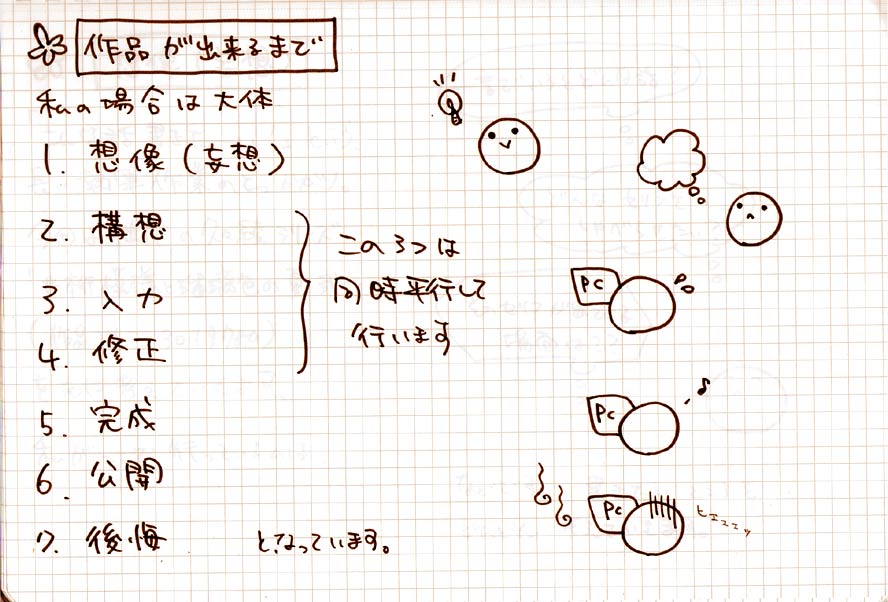 作品が出来るまで
私の場合は大体
1. 想像(妄想)
2. 構想
3. 入力
4. 修正
この3つは
同時平行して
行います
5. 完成
6. 公開
7. 後悔
となっています。
PC
PC
PC